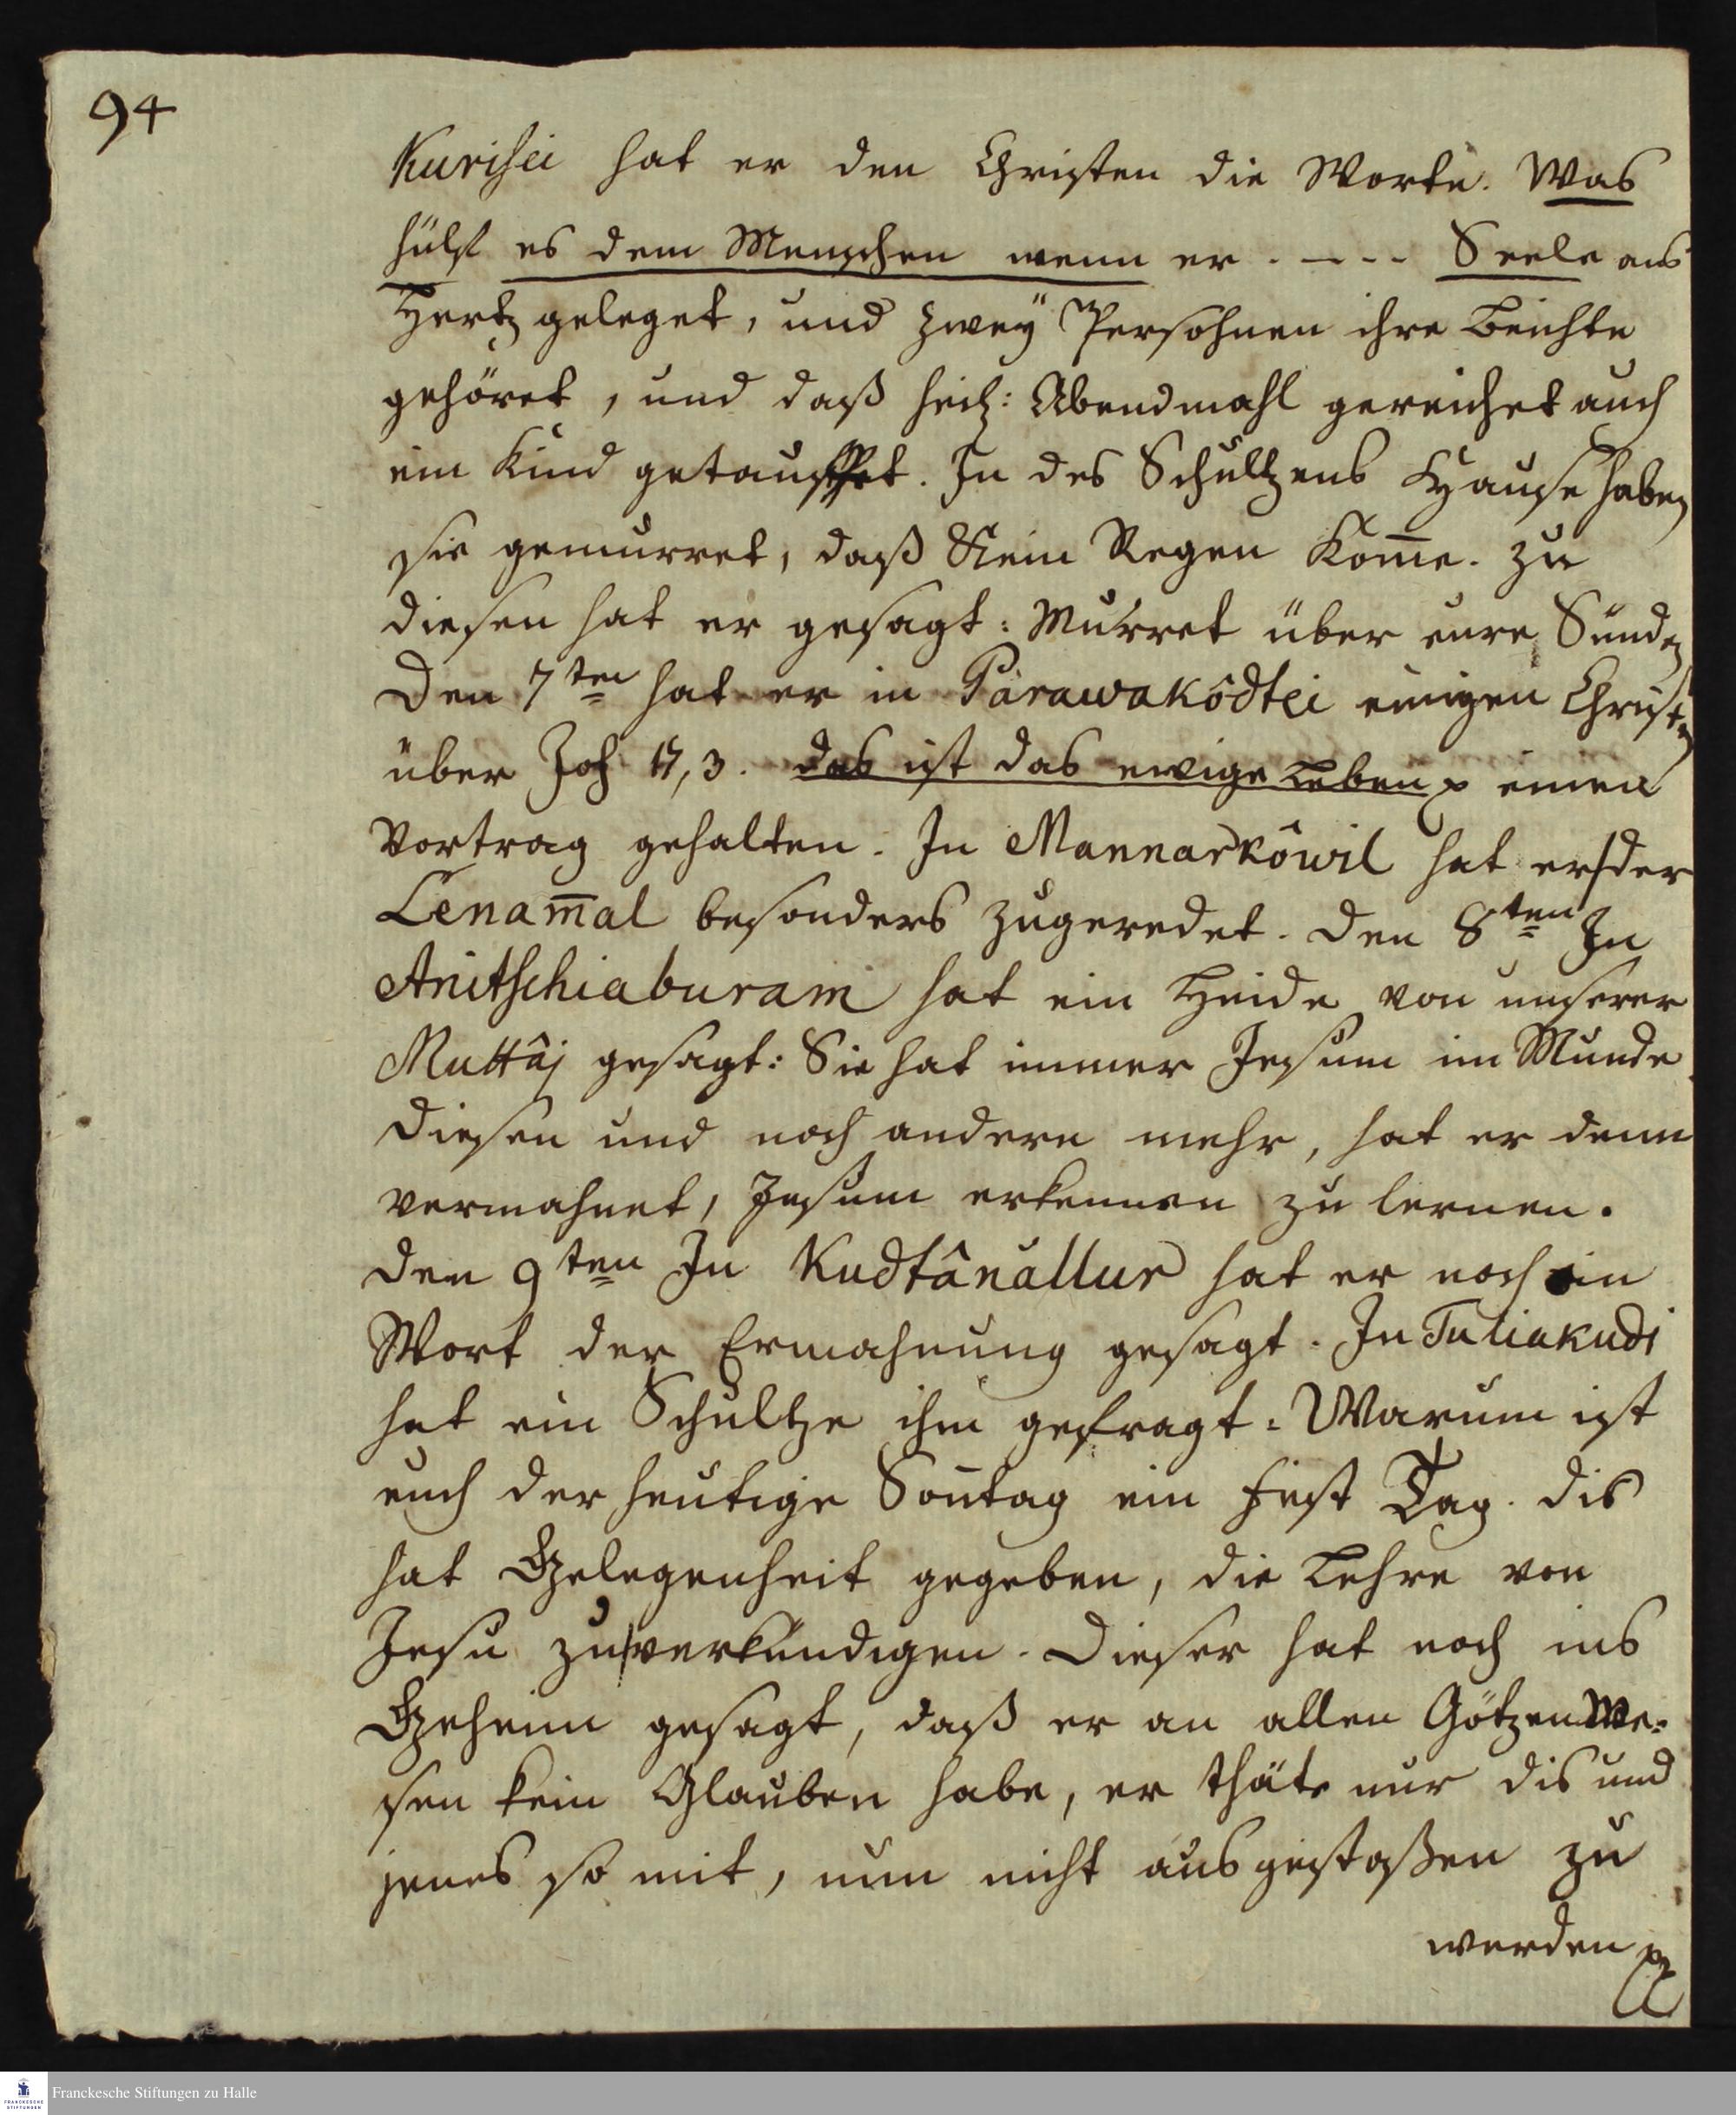 94
Kurisei hat er den Christen die Worte. Was
hülfs es dem Menschen wenn er . — - - Seele ans
Hertz geleget, und zwey Persohnen ihre Beichte
gehöret, und daß heil: Abendmahl gereichet auch
ein Kind getauffet. In des Schultzens Hause haben
sie gemurret, daß Kein Regen Kom̅e. zu
diesen hat er gesagt: Murret über eure Sünden
Den 7ten hat er in Parawakôdtei einigen Christen
über Joh 17, 3. das ist das ewige Leben einen
Vortrag gehalten. In Mannarkôwil hat er der
Lenam̅al besonders zugeredet. Den 8ten In
Anitschiaburam hat ein Heide von unserer
Muttâj gesagt: Sie hat immer Jesum im Munde
Diesen und noch andern mehr, hat er denn
vermahnet, Jesum erkennen zu lernen.
Den 9ten In Kudtânallur hat er noch ein
Wort der Ermahnung gesagt. In Tuliakudi
hat ein Schultze ihm gefragt: Warum ist
euch der heutige Son̅tag ein Fest Tag. Dis
hat Gelegenheit gegeben, die Lehre von
Jesu zu verkündigen. Dieser hat noch ins
Geheim gesagt, daß er an allen Götzen We-
sen kein Glauben habe, er thäte nur dis und
jenes so mit, num nicht ausgestoßen zu
werden
Franckesche Stiftungen zu Halle
FRANCKESCHE
STIFTUNGEN